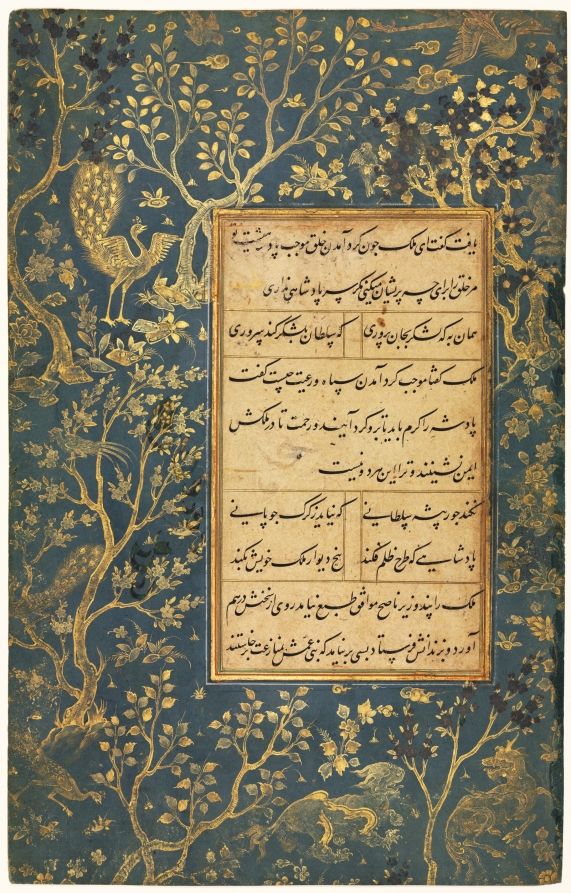 یافت گفت ای ملک چون کرد آمدن خلق موجب پادشاهیست تو
مر خلق را برای چه پریشان میکنی مگر سر پادشاهی نداری
همان به که لشکر بجان پروری که سلطان بلشکر کند سروری
ملک گفتا موجب کرد آمدن سپاه و رعیت چیست گفت
پادشه را کرم باید تا برو کرد آیند و رحمت تا در ملکش
ایمن نشینند و ترا این هر دو نیست
نکند جور پیشه سلطانی که نیاید ز کرک چوپانی
پادشاهی که طرح ظلم فکند بیخ دیوار ملک خویش بکند
ملک را پند وزیر ناصح موافق طبع نیامد روی از سخنش درهم
آورد و بزندانش فرستاد بسی برنیامد که بنی عمش بمنازعت برخاستند